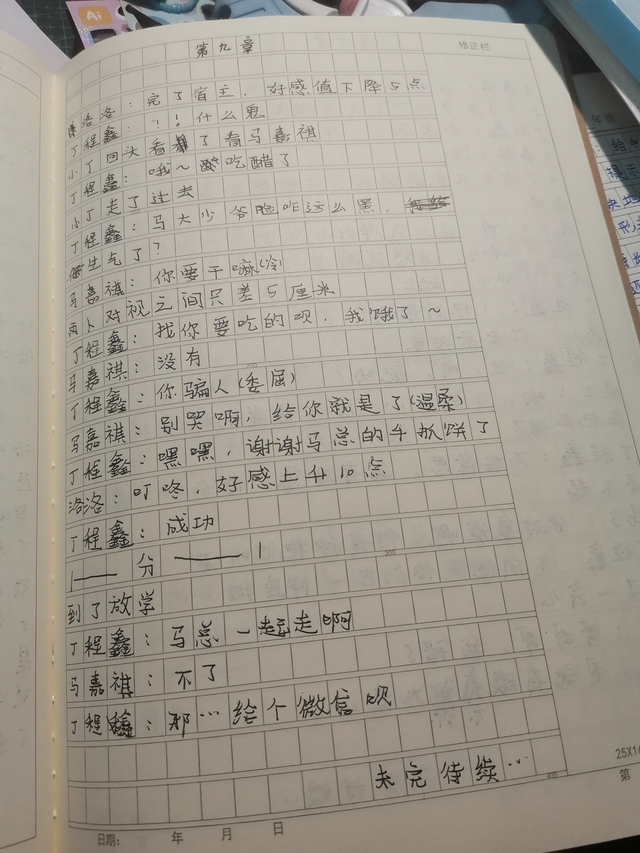 Ai
第九章
修正栏
洛洛：完了宿主，好感值下降5点
丁程鑫：？！什么鬼
小丁回头看了看马嘉祺
丁程鑫：哦~ 吃醋了
小丁走了过去
丁程鑫：马大少爷脸咋这么黑，
生气了？
马嘉祺：你要干嘛(冷)
两人对视之间只差5厘米
丁程鑫：找你要吃的呗，我饿了~
马嘉祺：没有
丁程鑫：你骗人(委屈)
马嘉祺：别哭啊，给你就是了(温柔)
丁程鑫：嘿嘿，谢谢马总的手抓饼了
洛洛：叮咚，好感上升10点
丁程鑫：成功
|—— 分 ——|
到了放学
丁程鑫：马总一起走啊
马嘉祺：不了
丁程鑫：那…给个微信呗
未完待续…
25X1
第
日期： 年 月 日